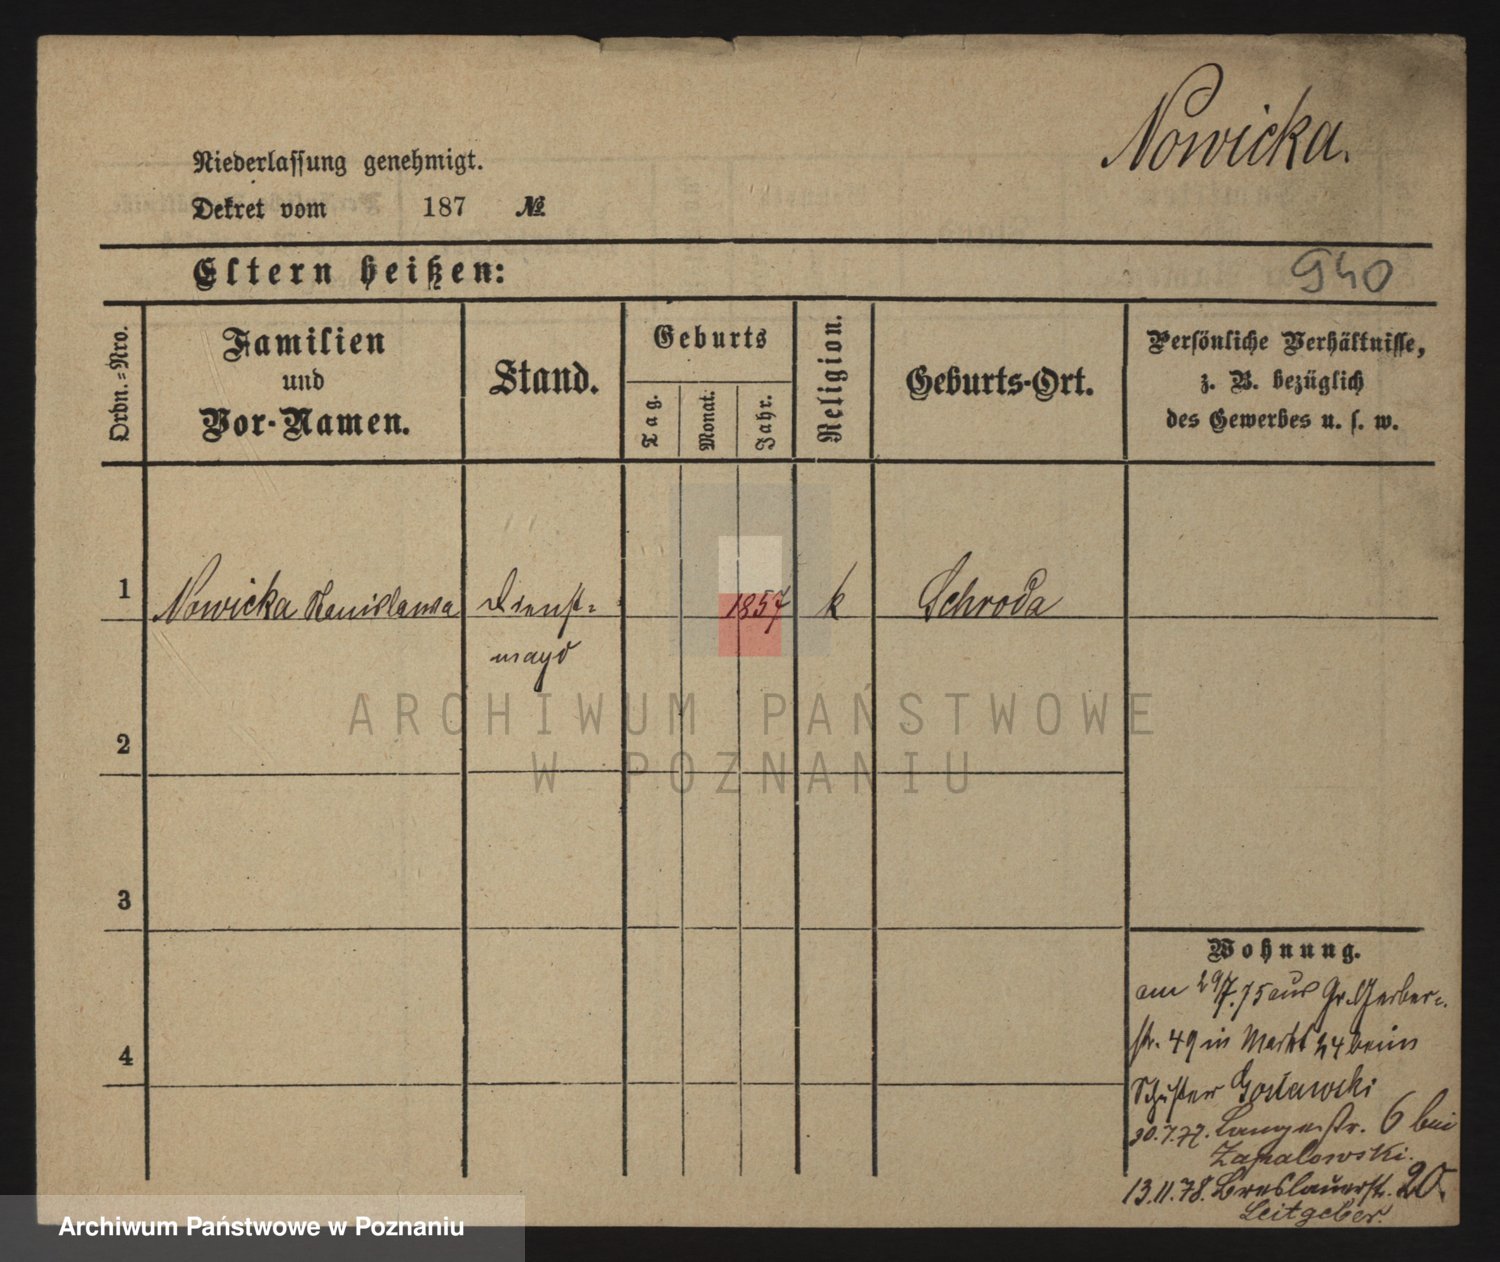 Nowicka.
Niederlassung genehmigt.
Dekret vom 187 №
Eltern heißen:
940
Ordn.=Nro.
Familien
und
Vor-Namen.
Stand.
Geburts
Tag.
Monat.
Jahr.
Religion.
Geburts-Ort.
Persönliche Verhältnisse,
z. B. bezüglich
des Gewerbes u. s. w.
1 Nowicka Stanislawa Dienst= 1857 k Schroda
magd
ARCHIWUM PAŃSTWOWE
W POZNANIU
2
3
4
Wohnung.
am 29/7.75 aus Gr. Gerber=
str. 49 in Markt 24 beim
Schuster
30.7.77. Langestr. 6 bei
13.11.78. Breslauerstr. 20.
Leitgeber.
Archiwum Państwowe w Poznaniu